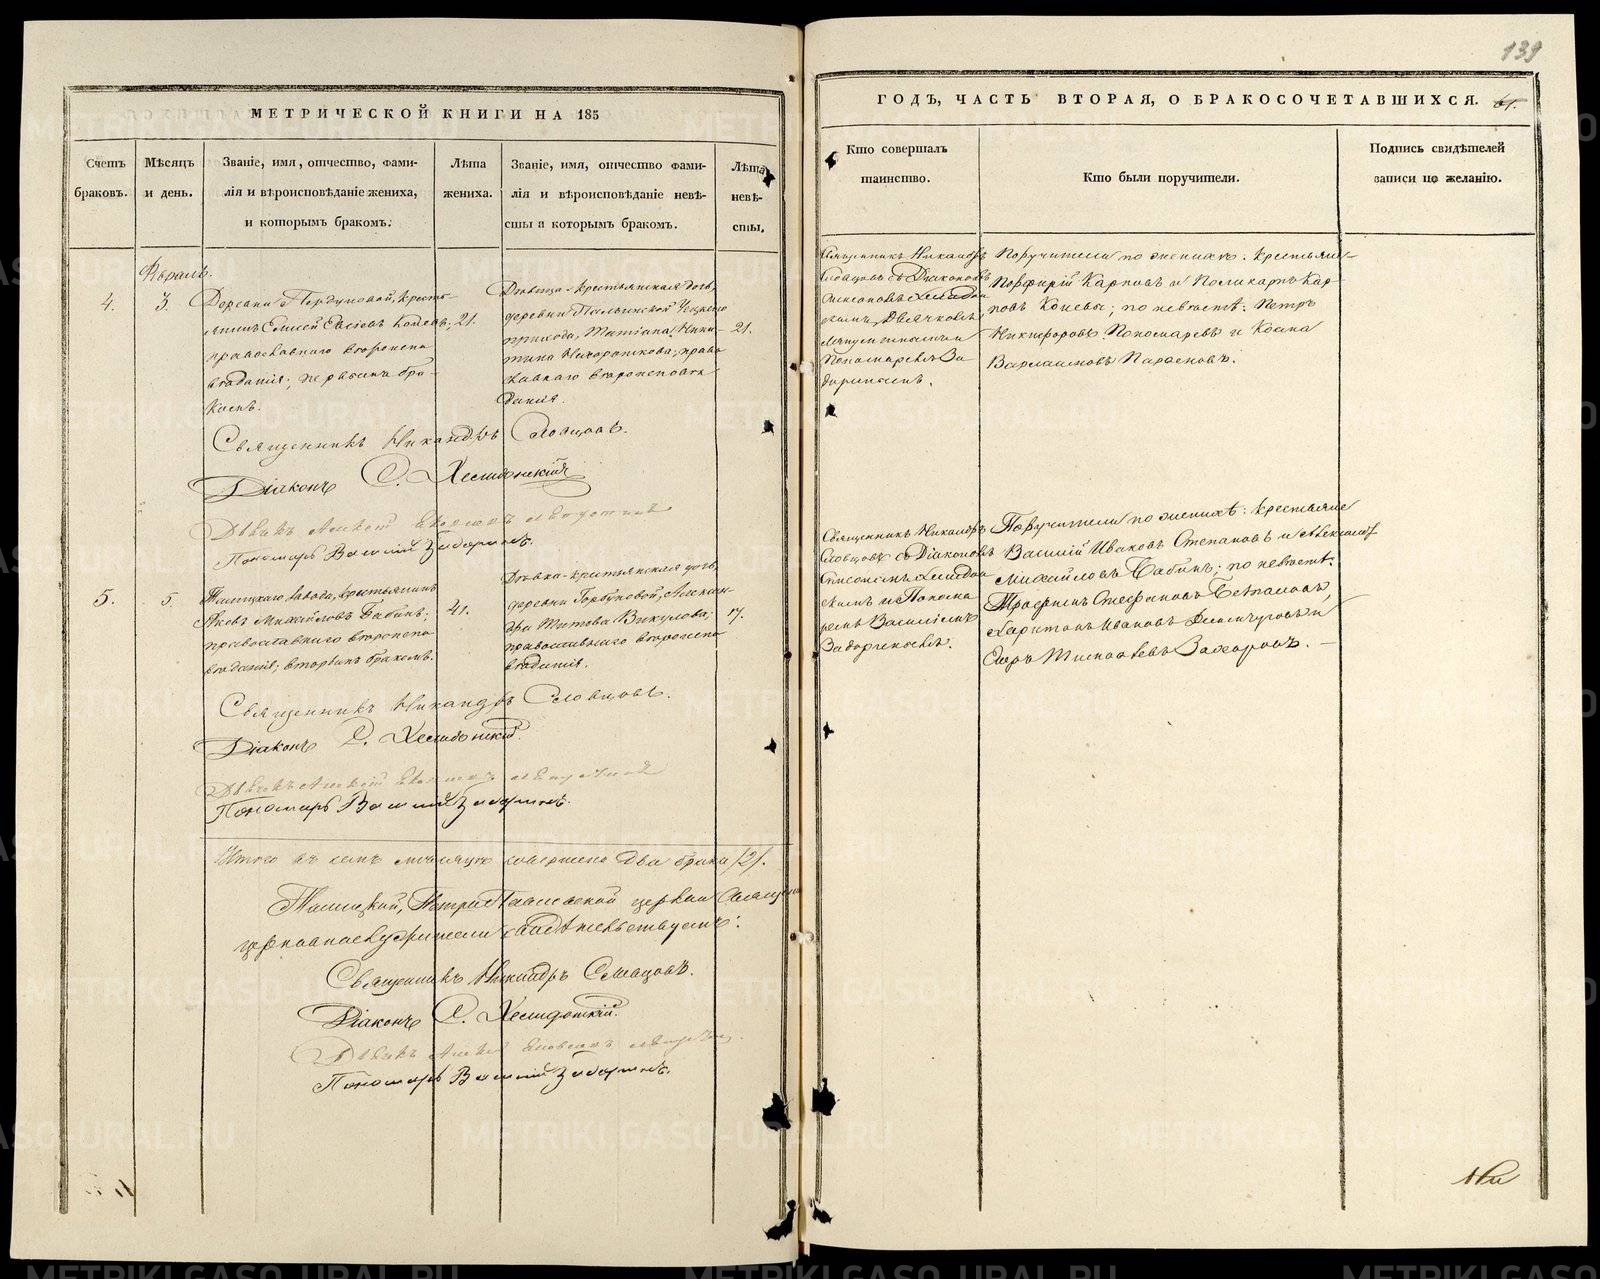 139
МЕТРИЧЕСКОЙ КНИГИ НА 185
ГОДЪ, ЧАСТЬ ВТОРАЯ, О БРАКОСОЧЕТАВШИХСЯ.
Счетъ
браковъ.
Мѣсяцъ
и день.
Званіе, имя, отчество, фами-
лія и вѣроисповѣданіе жениха,
и которымъ бракомъ.
Лѣта
жениха.
Званіе, имя, отчество фами-
лія и вѣроисповѣданіе невѣ-
сты и которымъ бракомъ.
Лѣта
невѣ-
сты.
Кто совершалъ
таинство.
Кто были поручители.
Подпись свидѣтелей
записи по желанію.
Февраль.
4.
3
Деревни Горбуновой, кресть-
янинъ Елисей Евсіевъ Коневъ,
православнаго вѣроиспо
вѣданія; первымъ бра-
комъ.
21.
Дѣвица крестьянская дочь,
деревни
прихода, Татіана Ники-
тина православнаго вѣроисповѣ
данія.
21.
Священникъ Никандръ
Словцовъ съ Діакономъ
Симеономъ Хелидон
скимъ, Дьячковъ
Пономаремъ За
доринымъ.
Поручители по женихѣ: крестьяне
Порфирій Карповъ и Поликарпъ Кар-
повъ Коневы; по невѣстѣ: Петръ
Никифоровъ Пономаревъ и Косма
Варлаамовъ
Священникъ Никандръ Словцовъ.
Діаконъ С. Хелидонскій
Дьячекъ
Пономарь Василій Задоринъ.
5.
5
Талицкаго завода, крестьянинъ
Яковъ Михайловъ Бабинъ;
православнаго вѣроиспо
вѣданія; вторымъ бракомъ.
41.
Дѣвка-крестьянская дочь,
деревни Горбуновой, Алексан-
дра Титова Викулова;
православнаго вѣроиспо
вѣданія.
17.
Священникъ Никандръ
Словцовъ съ Діакономъ
Симеономъ Хелидон
скимъ и Понома
ремъ Василіемъ
Задоринымъ.
Поручители по женихѣ: крестьяне
Василій Ивановъ Степановъ и Александръ
Михайловъ Бабинъ; по невѣстѣ:
Трофимъ Стефановъ
Харитонъ Ивановъ и
Егоръ Захаровъ.
Священникъ Никандръ Словцовъ.
Діаконъ С. Хелидонскій
Дьячекъ
Пономарь Василій Задоринъ.
Итого въ семъ мѣсяцѣ совершено два брака /2/.
Талицкой, Петропавловской церкви Священно
церковнослужители свидѣтельствуемъ:
Священникъ Никандръ Словцовъ.
Діаконъ С. Хелидонскій.
Дьячекъ
Пономарь Василій Задоринъ.
METRIKI.GASO-URAL.RU